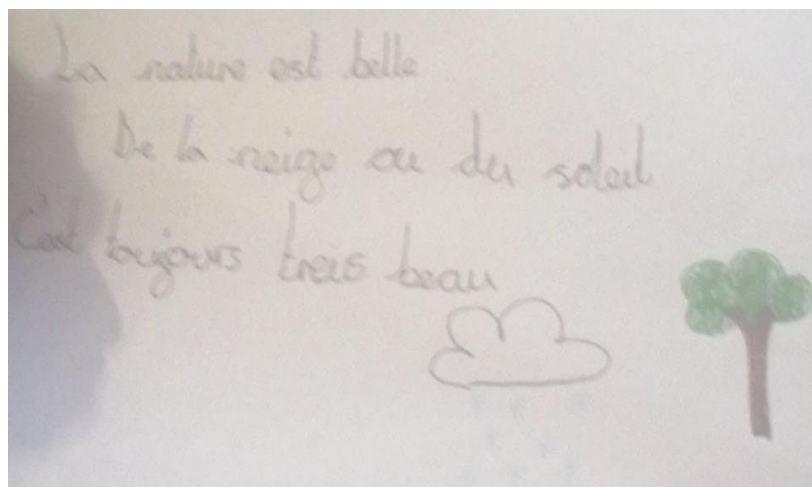 La nature est belle
De la neige ou du soleil
C'est toujours treis beau